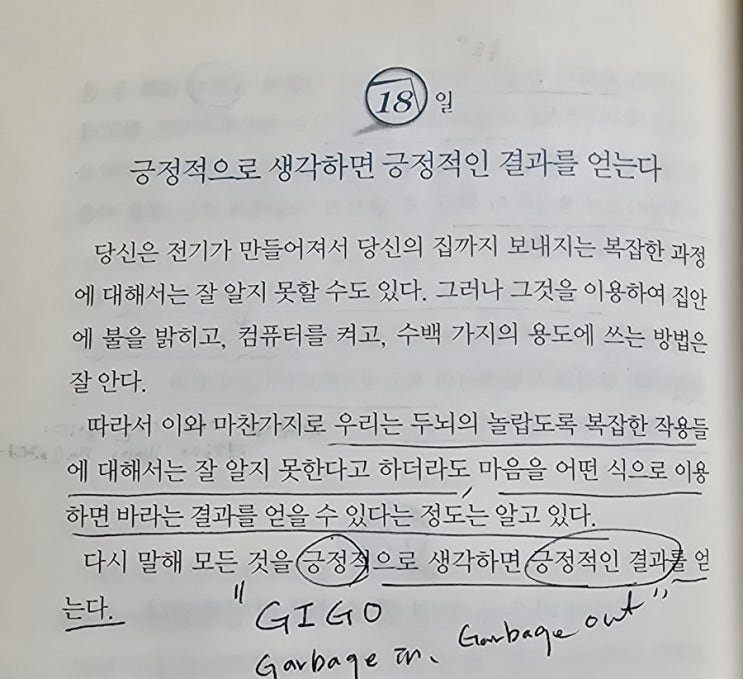 18 일
긍정적으로 생각하면 긍정적인 결과를 얻는다
당신은 전기가 만들어져서 당신의 집까지 보내지는 복잡한 과정
에 대해서는 잘 알지 못할 수도 있다. 그러나 그것을 이용하여 집안
에 불을 밝히고, 컴퓨터를 켜고, 수백 가지의 용도에 쓰는 방법은
잘 안다.
따라서 이와 마찬가지로 우리는 두뇌의 놀랍도록 복잡한 작용들
에 대해서는 잘 알지 못한다고 하더라도 마음을 어떤 식으로 이용
하면 바라는 결과를 얻을 수 있다는 정도는 알고 있다.
다시 말해 모든 것을 긍정적으로 생각하면 긍정적인 결과를 얻
는다.
"GIGO
Garbage in, Garbage out"